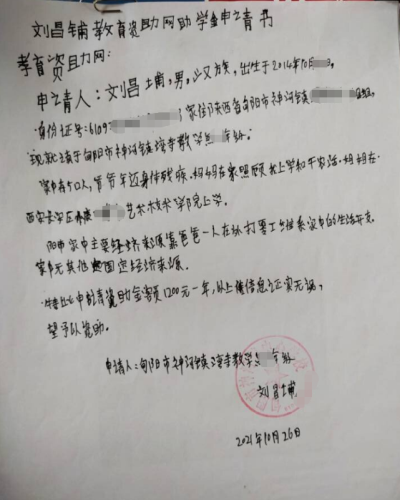 刘昌铺教育资助网助学金申请书
教育资助网:
申请人:刘昌埔,男,汉族,出生于2014年10月
身份证号:6109 家住陕西省旬阳市神河镇 组,
现就读于旬阳市神河镇 寺教学点 年级.
家中有5口人,爷爷年迈身体残疾,妈妈在家照顾我上学和干农活.姐姐在
西安 区 艺术 学院上学。
家中主要经济来源靠爸爸一人在外打零工 维系家中的生活开支.
家中无其他固定经济来源.
特此申请资助金额1200元一年,以上信息证实无误,
望予以资助.
申请人:旬阳市神河镇 寺教学点 年级
刘昌埔
2021年10月26日